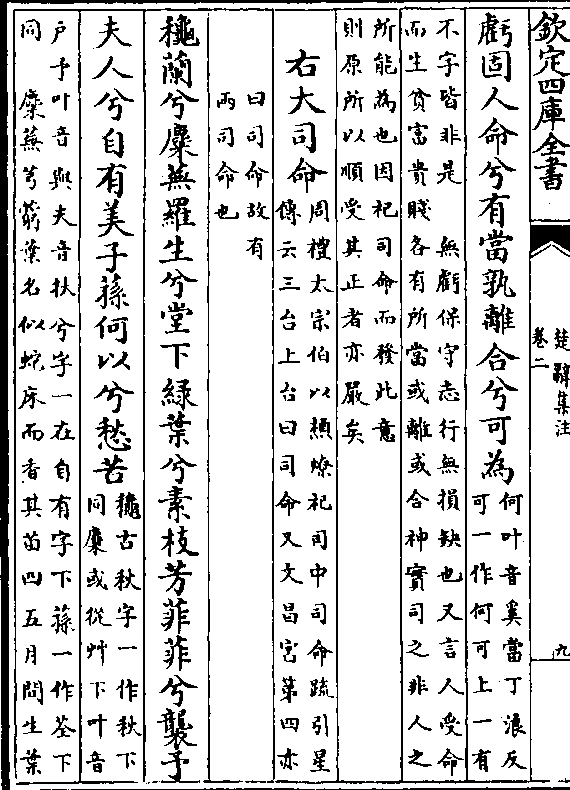 欽定四庫全書
楚辭集注
卷二
九
虧固人命兮有當孰離合兮可為
何叶音奚當丁浪反
可一作何可上一有
不字皆非是　無虧保守志行無損缺也又言人受命
而生貧富貴賤各有所當或離或合神實司之非人之
所能為也因祀司命而發此意
則原所以順受其正者亦嚴矣
右大司命
周禮太宗伯以槱燎祀司中司命疏引星
傳云三台上台曰司命又文昌宮第四亦
曰司命故有
兩司命也
穐蘭兮麋蕪羅生兮堂下綠葉兮素枝芳菲菲兮襲予
夫人兮自有美子蓀何以兮愁苦
穐古秋字一作秋下
同麋或從艸下叶音
戶予叶音與夫音扶兮字一在自有字下蓀一作荃下
同　麋蕪芎藭葉名似蛇床而香其苗四五月間生葉